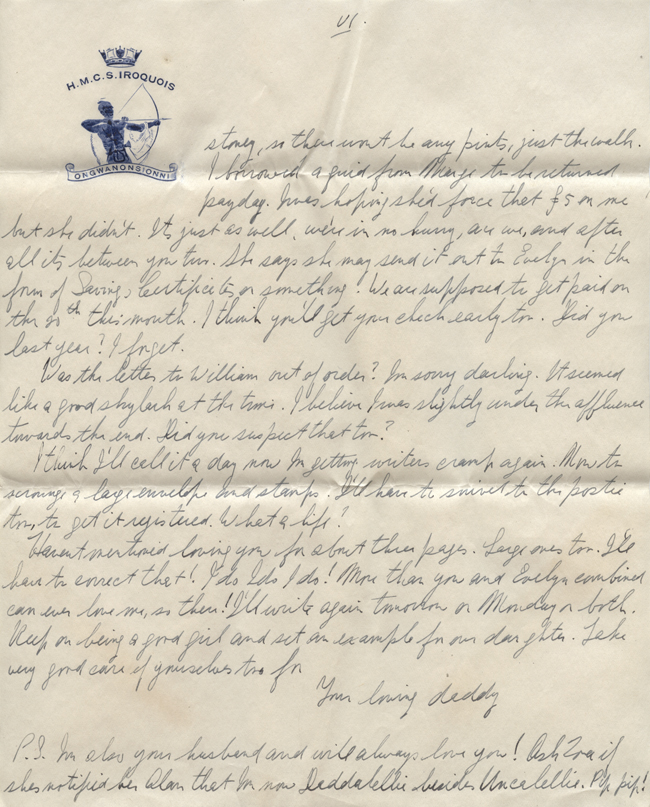 VI.
H.M.C.S. IROQUOIS
ONGWANONSIONNI
stoney, so there won't be any pints, just the walk.
I borrowed a quid from Marge to be returned
payday. I was hoping she'd force that £5 on me
but she didn't. It's just as well, we're in no hurry, are we, and after
all its between you two. She says she may send it out to Evelyn in the
form of Savings Certificates or something! We are supposed to get paid on
the 20th this month. I think you'll get your check early too. Did you
last year? I forget.
Was the letter to William out of order? I'm sorry darling. It seemed
like a good skylark at the time. I believe I was slightly under the affluence
towards the end. Did you suspect that too?
I think I'll call it a day now I'm getting writers cramp again. Now to
scrounge a large envelope and stamps. I'll have to snivel to the postie
too, to get it registered. What a life?
Haven't mentioned loving you for about three pages. Large ones too. I'll
have to correct that! I do I do I do! More than you and Evelyn combined
can ever love me, so there! I'll write again tomorrow or Monday or both.
Keep on being a good girl and set an example for our daughter. Take
very good care of yourselves too for
Your loving daddy
P.S. I'm also your husband and will always love you! Ask Zoe if
she's notified her Alan that I'm now Daddalellie besides Uncalellie. Pip, pip!